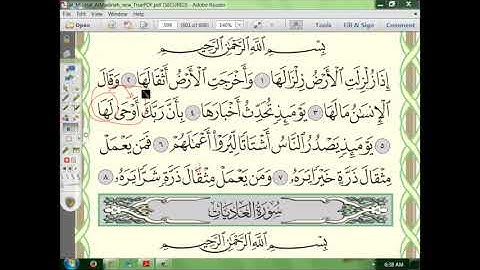 al_Mushaf_AlMadinah_new_TruePDF.pdf (SECURED) - Adobe Reader
Open
599
140%
Tools
Fill & Sign
Comment
بِسْمِ ٱللَّهِ ٱلرَّحْمَٰنِ ٱلرَّحِيمِ
إِذَا زُلْزِلَتِ ٱلْأَرْضُ زِلْزَالَهَا ١ وَأَخْرَجَتِ ٱلْأَرْضُ أَثْقَالَهَا ٢ وَقَالَ
ٱلْإِنسَٰنُ مَا لَهَا ٣ يَوْمَئِذٍ تُحَدِّثُ أَخْبَارَهَا ٤ بِأَنَّ رَبَّكَ أَوْحَىٰ لَهَا
٥ يَوْمَئِذٍ يَصْدُرُ ٱلنَّاسُ أَشْتَاتًا لِّيُرَوْا۟ أَعْمَٰلَهُمْ ٦ فَمَن يَعْمَلْ
مِثْقَالَ ذَرَّةٍ خَيْرًا يَرَهُۥ ٧ وَمَن يَعْمَلْ مِثْقَالَ ذَرَّةٍ شَرًّا يَرَهُۥ ٨
سُورَةُ الْعَادِيَاتِ
بِسْمِ ٱللَّهِ ٱلرَّحْمَٰنِ ٱلرَّحِيمِ
6:38 AM